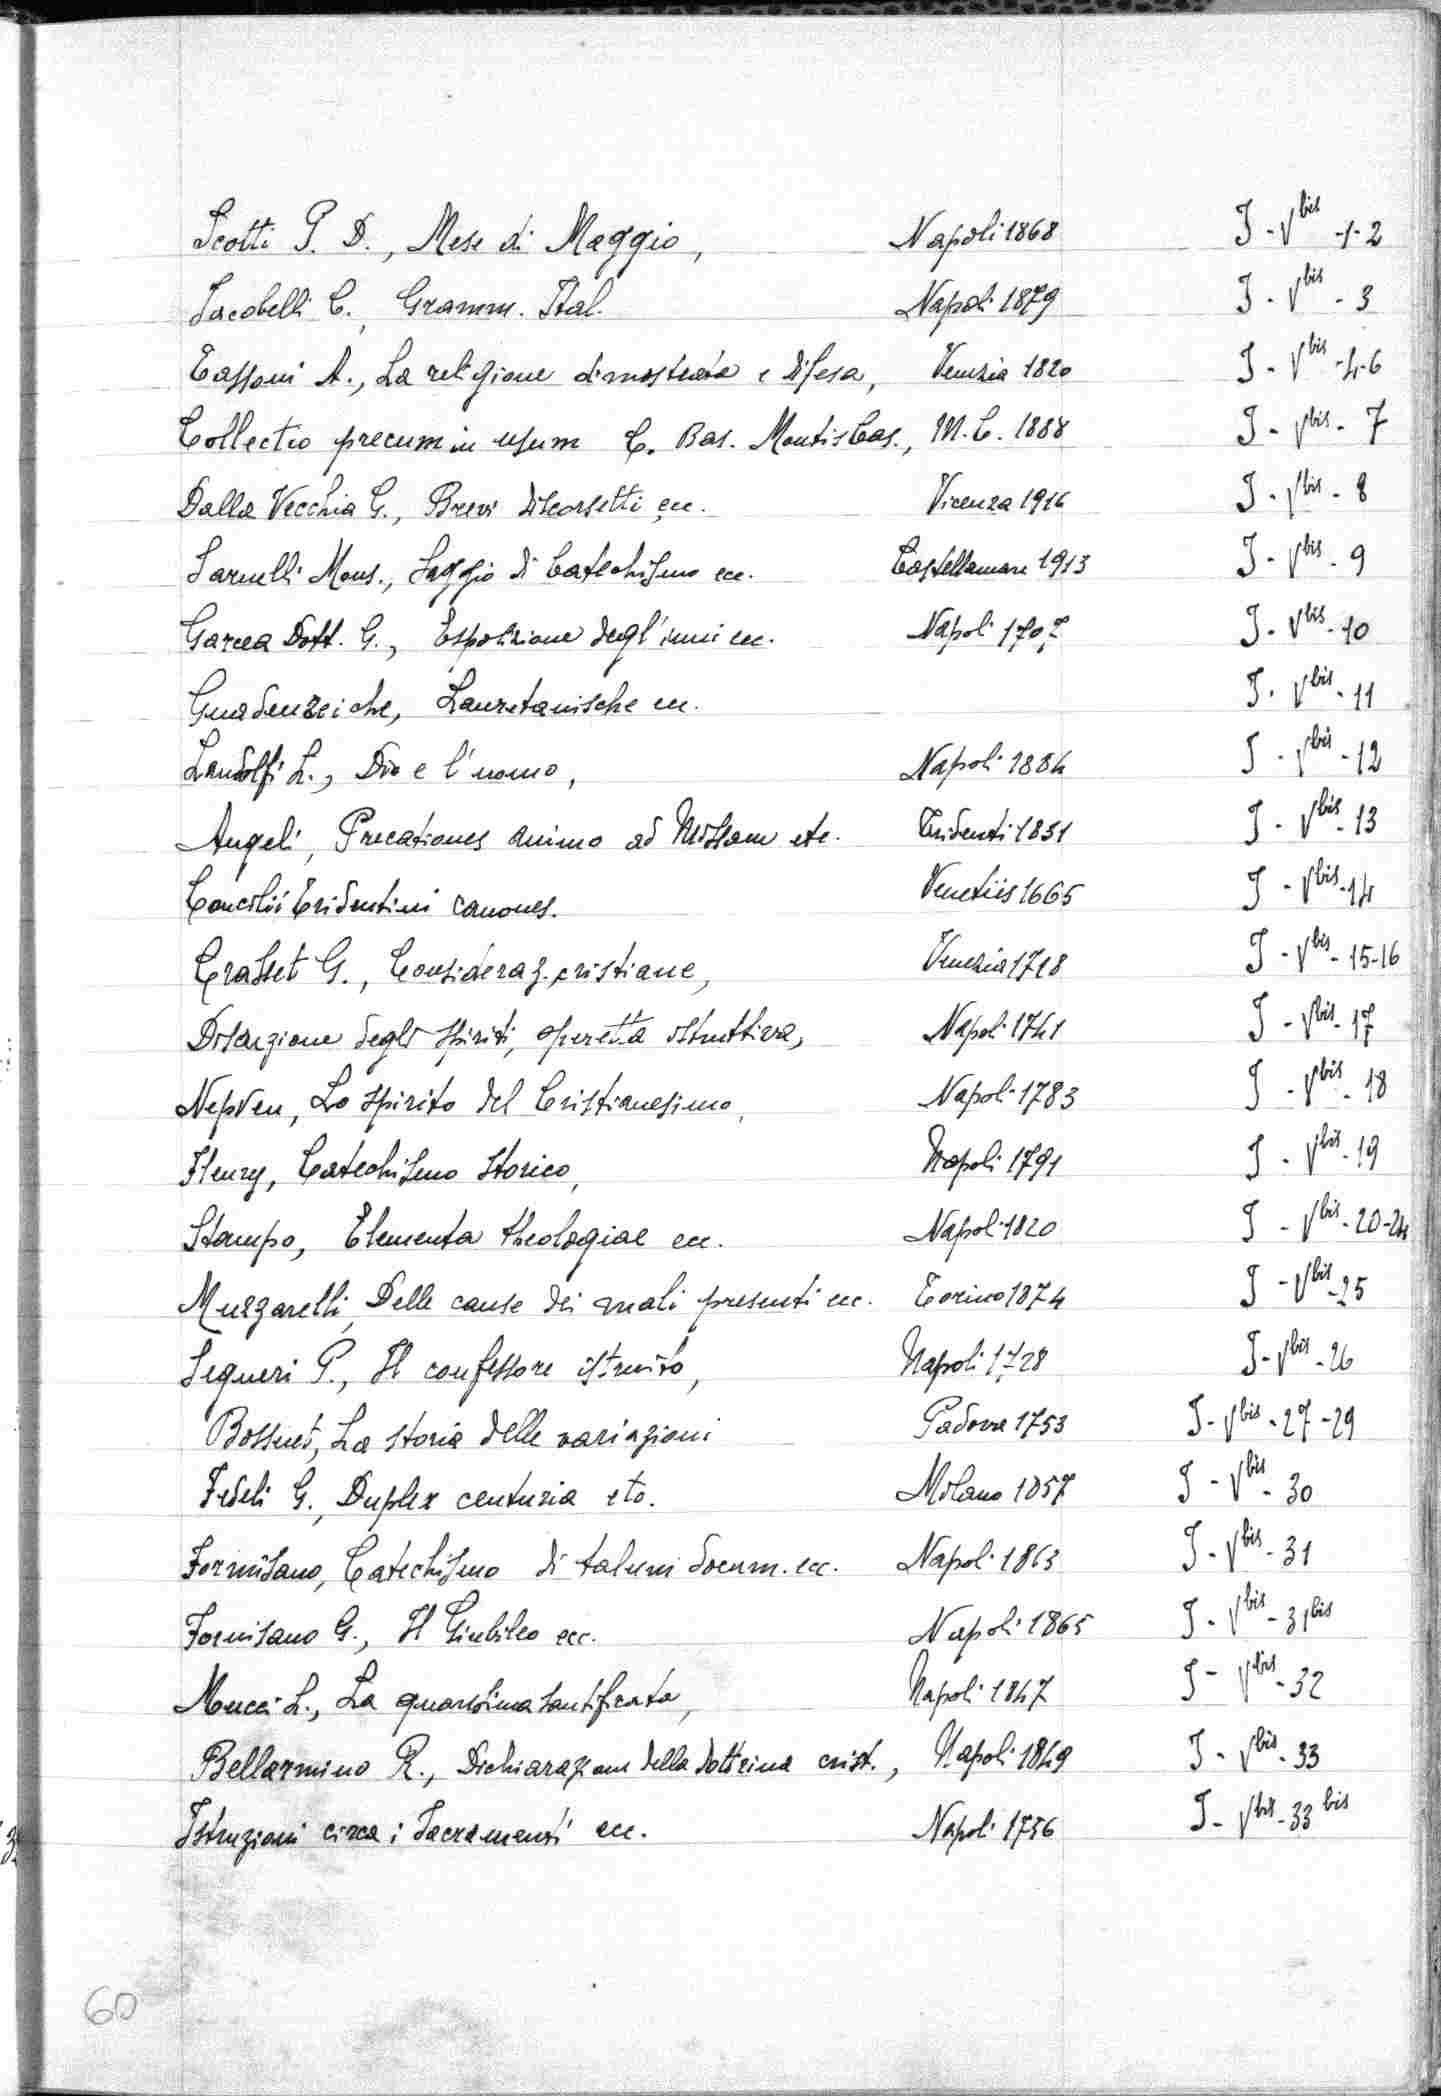 Scotti P. D., Mese di Maggio, Napoli 1868 I - V bis - 1-2
Iacobelli C., Gramm. Ital. Napoli 1879 I - V bis - 3
Tassoni A., La religione dimostrata e difesa, Venezia 1820 I - V bis - 4-6
Collectio precum in usum C. Bas. Montis Cas., M.C. 1888 I - V bis - 7
Dalla Vecchia G., Brevi discorsetti ecc. Vicenza 1916 I - V bis - 8
Sarnelli Mons., Saggio di Catechismo ecc. Castellamare 1913 I - V bis - 9
Garcea Dott. G., Esposizione degl'inni ecc. Napoli 1707 I - V bis - 10
Gnadenreiche, Lauretanische ecc. I - V bis - 11
Landolfi L., Dio e l'uomo, Napoli 1884 I - V bis - 12
Angeli, Precationes animo ad Missam etc. Tridenti 1851 I - V bis - 13
Concilii Tridentini canones. Venetiis 1665 I - V bis - 14
Crasset G., Consideraz. cristiane, Venezia 1718 I - V bis - 15-16
Discrezione degli spiriti, operetta istruttiva, Napoli 1741 I - V bis - 17
Nepveu, Lo spirito del Cristianesimo, Napoli 1783 I - V bis - 18
Fleury, Catechismo storico, Napoli 1791 I - V bis - 19
Stampo, Elementa theologiae ecc. Napoli 1820 I - V bis - 20-24
Muzzarelli, Delle cause dei mali presenti ecc. Torino 1874 I - V bis - 25
Segneri P., Il confessore istruito, Napoli 1728 I - V bis - 26
Bossuet, La storia delle variazioni Padova 1753 I - V bis - 27-29
Fedeli G., Duplex centuria etc. Milano 1857 I - V bis - 30
Formisano, Catechismo di taluni docum. ecc. Napoli 1863 I - V bis - 31
Formisano G., Il Giubileo ecc. Napoli 1865 I - V bis - 31 bis
Mucci L., La quaresima santificata, Napoli 1847 I - V bis - 32
Bellarmino R., Dichiarazione della dottrina crist., Napoli 1849 I - V bis - 33
Istruzioni circa i Sacramenti ecc. Napoli 1756 I - V bis - 33 bis
60